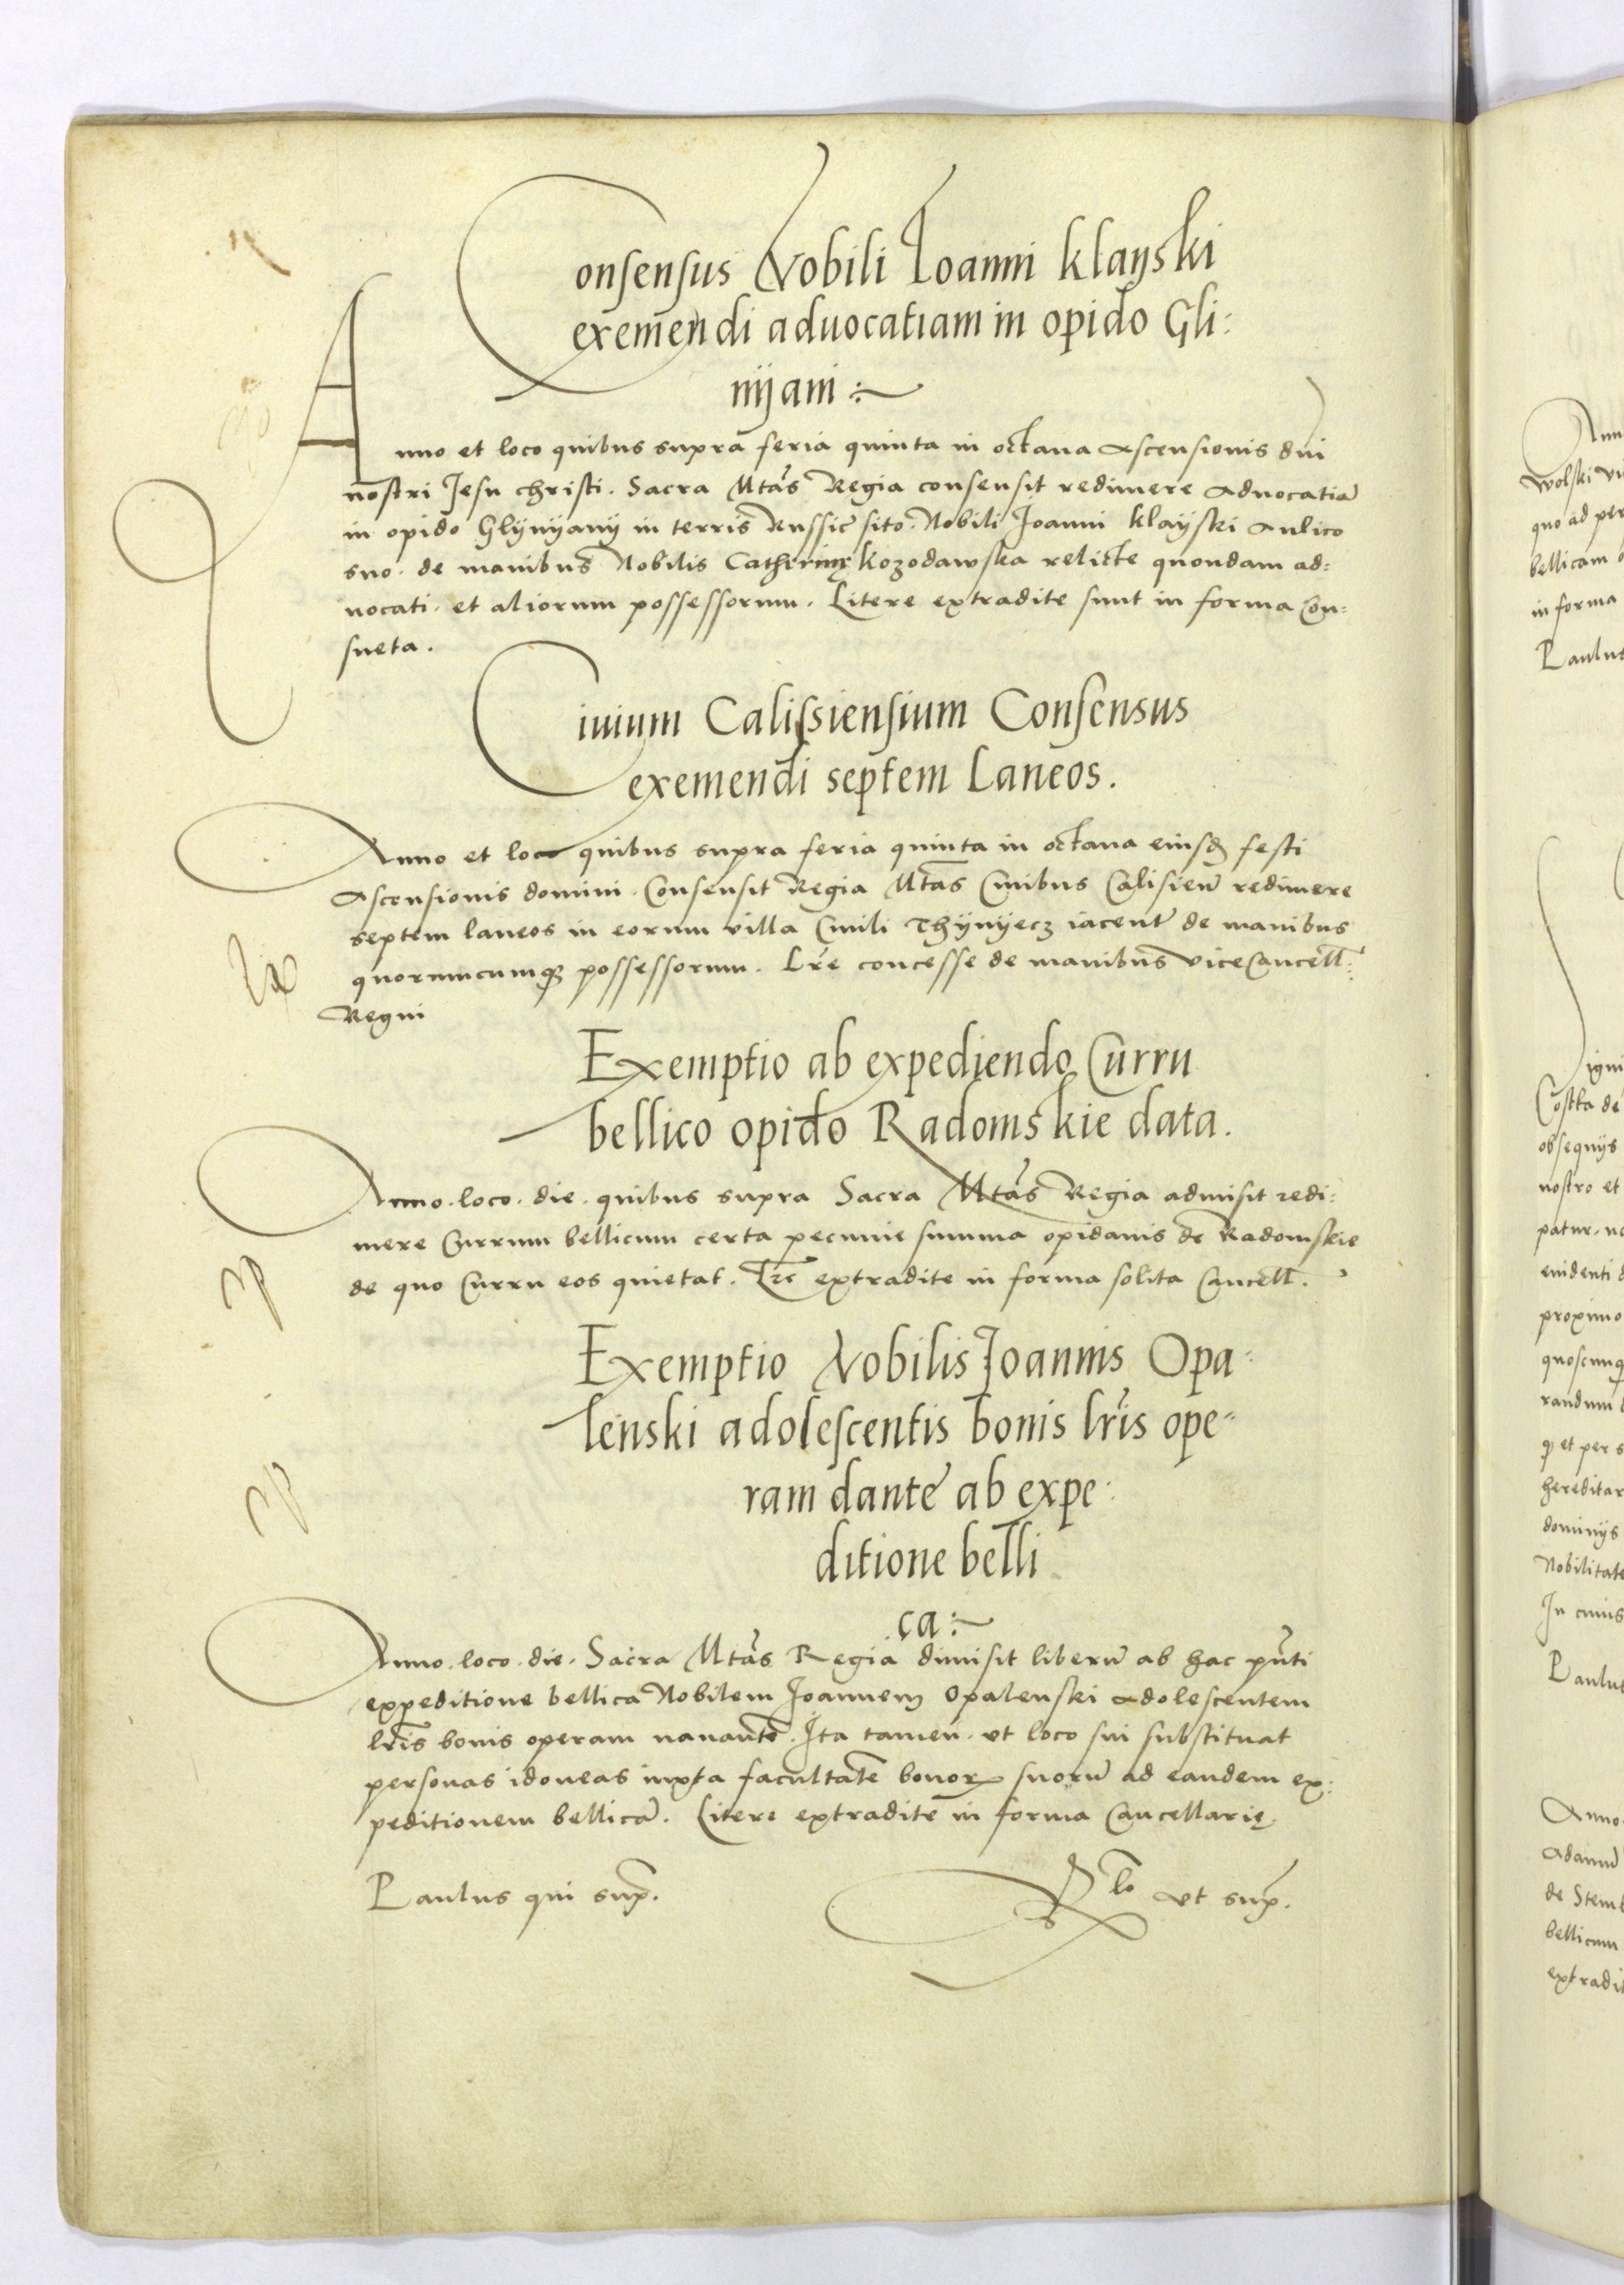 Consensus Nobili Ioanni Klayski
exemendi aduocatiam in opido Gli:
nijani :~
Anno et loco quibus supra feria quinta in octaua Ascensionis dni
nostri Jesu christi. Sacra Mtas Regia consensit redimere Aduocatiā
in opido Glÿnÿanÿ in terris Russie sito. Nobili Joanni Klaÿski Aulico
suo. de manibus Nobilis Catherinę Kozodawska relicte quondam ad:
uocati. et aliorum possessorum. Litere extradite sunt in forma Con:
sueta.
Ciuium Calissiensium Consensus
exemendi septem Laneos.
Anno et loco quibus supra feria quinta in octaua eiusd festi
Ascensionis domini. Consensit Regia Mtas Ciuibus Calisien redimere
septem laneos in eorum villa Ciuili Thÿnÿecz iacent de manibus
quorumcumqz possessorum. Lre concesse de manibus viceCancell:
Regni
Exemptio ab expediendo Curru
bellico opido Radomskie data.
Anno. loco. die. quibus supra Sacra Mtas Regia admisit redi:
mere Currum bellicum certa pecunie summa opidanis de Radomskie
de quo Curru eos quietat. Lre extradite in forma solita Cancell.
Exemptio Nobilis Joannis Opa:
lenski adolescentis bonis lris ope:
ram dante ab expe:
ditione belli
ca :~
Anno. loco. die. Sacra Mtas Regia dimisit liberū ab hac pnti
expeditione bellica Nobilem Joannem Opalenski Adolescentem
lris bonis operam nauantē. Ita tamen. vt loco sui substituat
personas idoneas iuxta facultatē bonor suorū ad eandem ex:
peditionem bellicā. Litere extradite in forma Cancellarię
Paulus qui sup.
vt sup.
Wolski
quo ad per
bellicam
in forma
Paulus
Costka de
obsequijs
nostro et
patur.
euidenti
proximo
randum
et per
hereditar
dominijs
Nobilitate
In cuius
Paulus
Anno
Adamū
de Stemb
bellicum
extradit